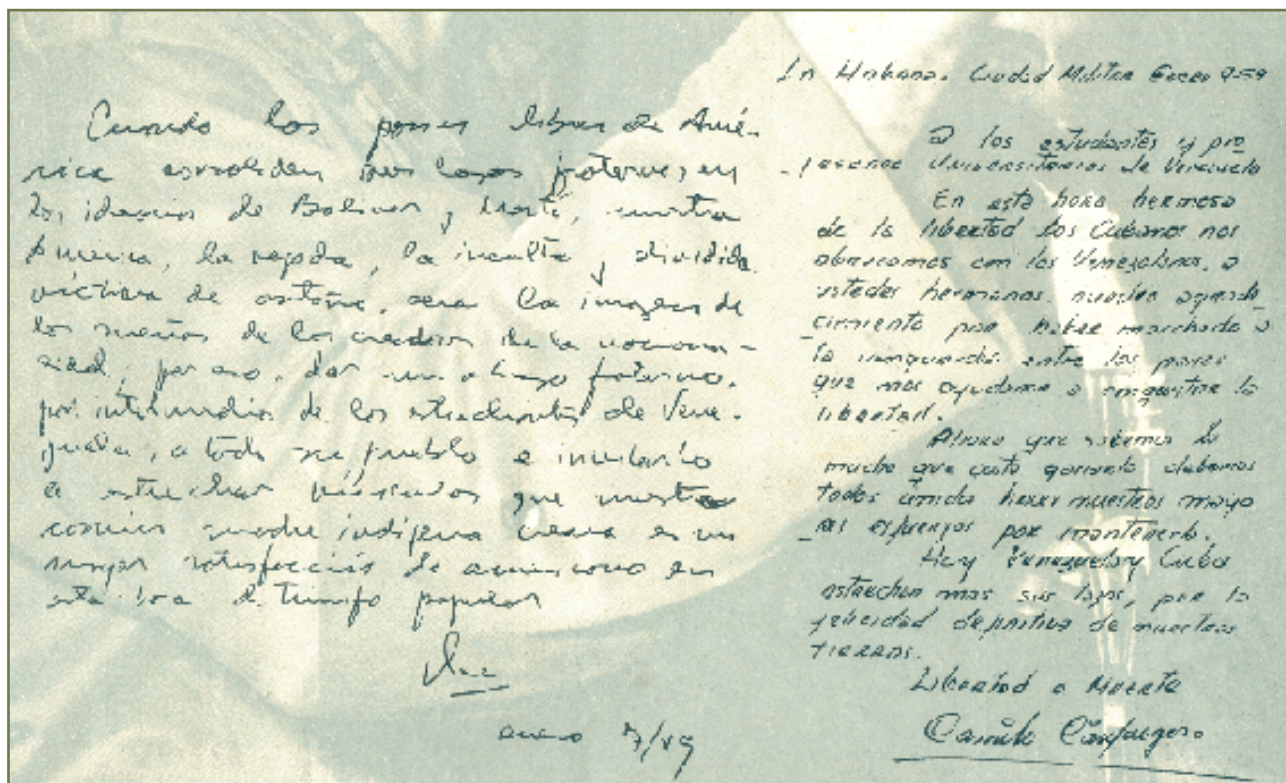 Cuando los paises libres de Amé-
rica consoliden sus lazos fraternos en
los idearios de Bolivar y Martí, nuestra
America, la vejada, la inculta y dividida
víctima de antaño, sera la imagen de
los sueños de los creadores de la naciona-
lidad; por eso, dar un abrazo fraterno,
por intermedio de los estudiantes de Vene-
zuela, a todo su pueblo e invitarlo
a estrechar vínculos que nuestra
comun madre indígena creara es mi
mayor satisfacción de americano en
esta hora de triunfo popular
Che
enero 7/59
La Habana. Ciudad Militar Enero 959
A los estudiantes y pro
-fesores Universitarios de Venezuela
En esta hora hermosa
de la libertad los Cubanos nos
abrazamos con los Venezolanos, a
ustedes hermanos, nuestro agrade
-cimiento por haber marchado a
la vanguardia entre los paises
que mas ayudaron a conquistar la
libertad.
Ahora que sabemos lo
mucho que costo ganarla debemos
todos únidos hacer nuestros mayo
-res esfuerzos por mantenerla.
Hoy Venezuela y Cuba
estrechan mas sus lazos, por la
felicidad definitiva de nuestras
tierras.
Libertad o Muerte
Camilo Cienfuegos